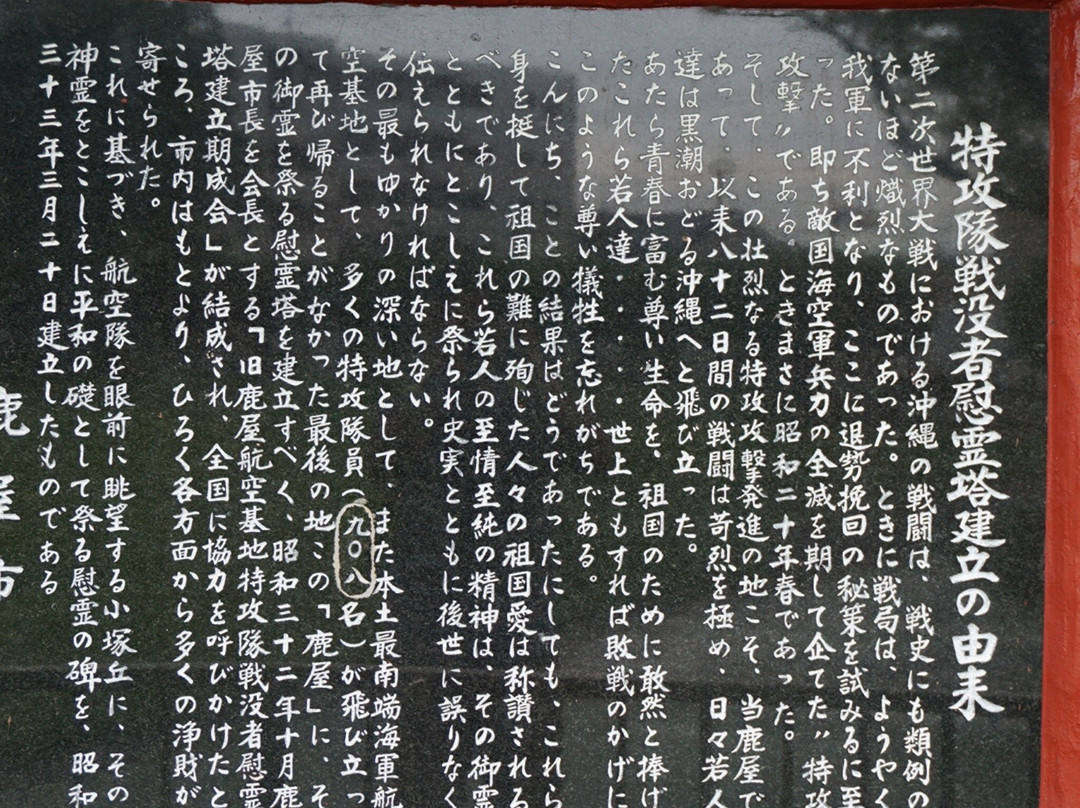 特攻隊戦没者慰霊塔建立の由来
第二次世界大戦における沖縄の戦闘は、戦史にも類例の
ないほど熾烈なものであった。ときに戦局は、ようやく
我軍に不利となり、ここに退勢挽回の秘策を試みるに至
った。即ち敵国海空軍兵力の全滅を期して企てた〃特攻
攻撃〃である。ときまさに昭和二十年春であった。
そして、この壮烈なる特攻攻撃発進の地こそ、当鹿屋で
あって、以来八十二日間の戦闘は苛烈を極め、日々若人
達は黒潮おどる沖縄へと飛び立った。
あたら青春に富む尊い生命を、祖国のために敢然と捧げ
たこれら若人達・・・・・世上ともすれば敗戦のかげに
このような尊い犠牲を忘れがちである。
こんにち、ことの結果はどうであったにしても、これら
身を挺して祖国の難に殉じた人々の祖国愛は称讃される
べきであり、これら若人の至情至純の精神は、その御霊
とともにとこしえに祭られ史実とともに後世に誤りなく
伝えられなければならない。
その最もゆかりの深い地として、また本土最南端海軍航
空基地として、多くの特攻隊員(九〇八名)が飛び立っ
て再び帰ることがなかった最後の地この「鹿屋」に、そ
の御霊を祭る慰霊塔を建立すべく、昭和三十二年十月鹿
屋市長を会長とする「旧鹿屋航空基地特攻隊戦没者慰霊
塔建立期成会」が結成され、全国に協力を呼びかけたと
ころ、市内はもとより、ひろく各方面から多くの浄財が
寄せられた。
これに基づき、航空隊を眼前に眺望する小塚丘に、その
神霊をとこしえに平和の礎として祭る慰霊の碑を、昭和
三十三年三月二十日建立したものである
鹿屋市